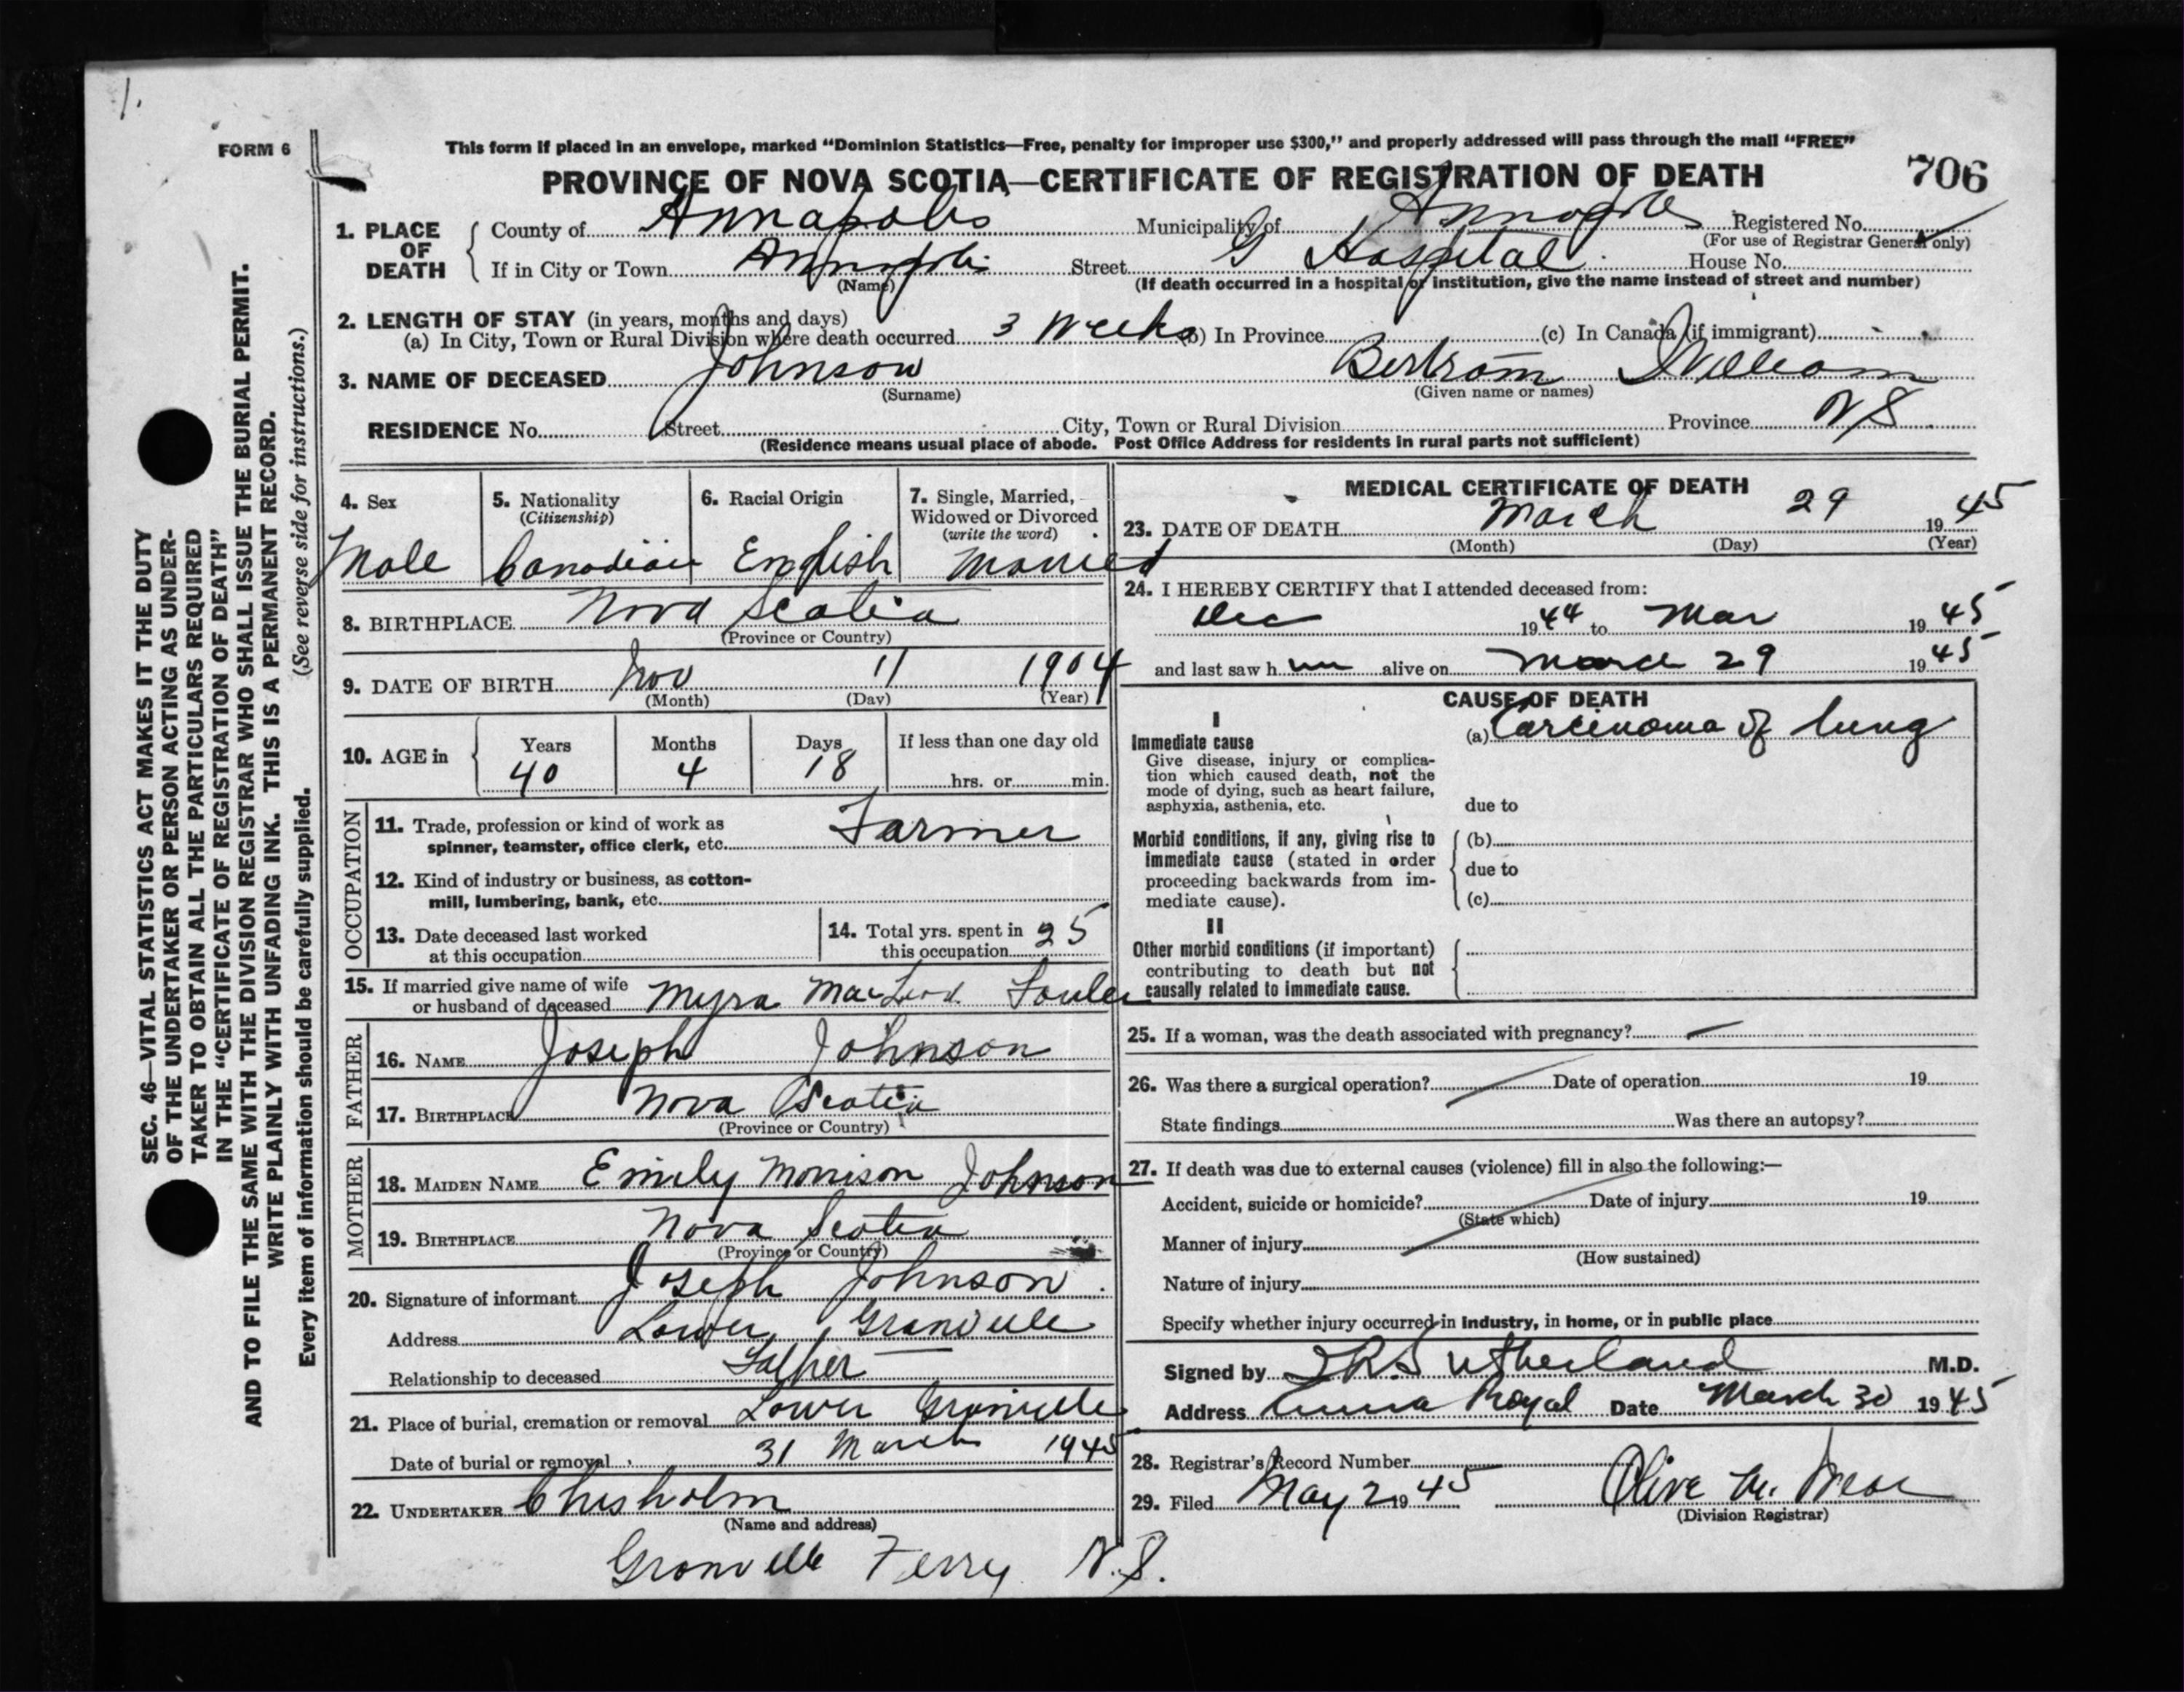 1.
FORM 6
This form if placed in an envelope, marked "Dominion Statistics—Free, penalty for improper use $300," and properly addressed will pass through the mail "FREE"
PROVINCE OF NOVA SCOTIA—CERTIFICATE OF REGISTRATION OF DEATH
706
1. PLACE OF DEATH
County of Annapolis Municipality of Annapolis Registered No.
(For use of Registrar General only)
If in City or Town Annapolis Street G Hospital House No.
(Name) (If death occurred in a hospital or institution, give the name instead of street and number)
2. LENGTH OF STAY (in years, months and days)
(a) In City, Town or Rural Division where death occurred 3 Weeks (b) In Province (c) In Canada (if immigrant)
3. NAME OF DECEASED Johnson Bertram William
(Surname) (Given name or names)
RESIDENCE No. Street City, Town or Rural Division Province N S
(Residence means usual place of abode. Post Office Address for residents in rural parts not sufficient)
4. Sex
Male
5. Nationality
(Citizenship)
Canadian
6. Racial Origin
English
7. Single, Married,
Widowed or Divorced
(write the word)
Married
8. BIRTHPLACE Nova Scotia
(Province or Country)
9. DATE OF BIRTH Nov 11 1904
(Month) (Day) (Year)
10. AGE in
Years Months Days If less than one day old
40 4 18 hrs. or min.
OCCUPATION
11. Trade, profession or kind of work as
spinner, teamster, office clerk, etc. Farmer
12. Kind of industry or business, as cotton-
mill, lumbering, bank, etc.
13. Date deceased last worked
at this occupation
14. Total yrs. spent in
this occupation 25
15. If married give name of wife
or husband of deceased Myra MacLeod
FATHER
16. NAME Joseph Johnson
17. BIRTHPLACE Nova Scotia
(Province or Country)
MOTHER
18. MAIDEN NAME Emily Morrison Johnson
19. BIRTHPLACE Nova Scotia
(Province or Country)
20. Signature of informant Joseph Johnson
Address Lower Granville
Relationship to deceased Father
21. Place of burial, cremation or removal Lower Granville
Date of burial or removal 31 March 1945
22. UNDERTAKER Chisholm
(Name and address)
Granville Ferry N.S.
MEDICAL CERTIFICATE OF DEATH
23. DATE OF DEATH March 29 1945
(Month) (Day) (Year)
24. I HEREBY CERTIFY that I attended deceased from:
Dec 1944 to Mar 1945
and last saw him alive on March 29 1945
CAUSE OF DEATH
I
Immediate cause
Give disease, injury or complica-
tion which caused death, not the
mode of dying, such as heart failure,
asphyxia, asthenia, etc.
(a) Carcinoma of lung
due to
Morbid conditions, if any, giving rise to
immediate cause (stated in order
proceeding backwards from im-
mediate cause).
(b)
due to
(c)
II
Other morbid conditions (if important)
contributing to death but not
causally related to immediate cause.
25. If a woman, was the death associated with pregnancy?
26. Was there a surgical operation? Date of operation 19
State findings Was there an autopsy?
27. If death was due to external causes (violence) fill in also the following:—
Accident, suicide or homicide? Date of injury 19
(State which)
Manner of injury
(How sustained)
Nature of injury
Specify whether injury occurred in industry, in home, or in public place
Signed by Sutherland M.D.
Address Anna Royal Date March 30 1945
28. Registrar's Record Number
29. Filed May 2 1945 Olive M.
(Division Registrar)
SEC. 46—VITAL STATISTICS ACT MAKES IT THE DUTY
OF THE UNDERTAKER OR PERSON ACTING AS UNDER-
TAKER TO OBTAIN ALL THE PARTICULARS REQUIRED
IN THE "CERTIFICATE OF REGISTRATION OF DEATH"
AND TO FILE THE SAME WITH THE DIVISION REGISTRAR WHO SHALL ISSUE THE BURIAL PERMIT.
WRITE PLAINLY WITH UNFADING INK. THIS IS A PERMANENT RECORD.
Every item of information should be carefully supplied. (See reverse side for instructions.)